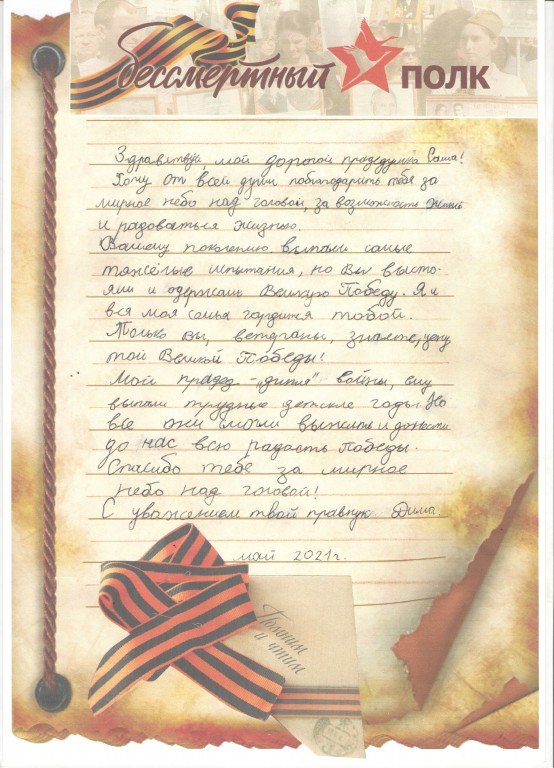 бессмертный полк
Здравствуй, мой дорогой прадедушка Саша!
Хочу от всей души поблагодарить тебя за
мирное небо над головой, за возможность жить
и радоваться жизнью.
Вашему поколению выпали самые
тяжёлые испытания, но Вы высто-
яли и одержали Великую Победу. Я и
вся моя семья гордится тобой.
Только Вы, ветераны, знаете, цену
той Великой Победы!
Мой прадед - „дитя" войны, ему
выпали трудные детские годы. Но
все они смогли выжить и донести
до нас всю радость Победы.
Спасибо тебе за мирное
небо над головой!
С уважением твой правнук Дима.
май 2021г.
Помним
и чтим